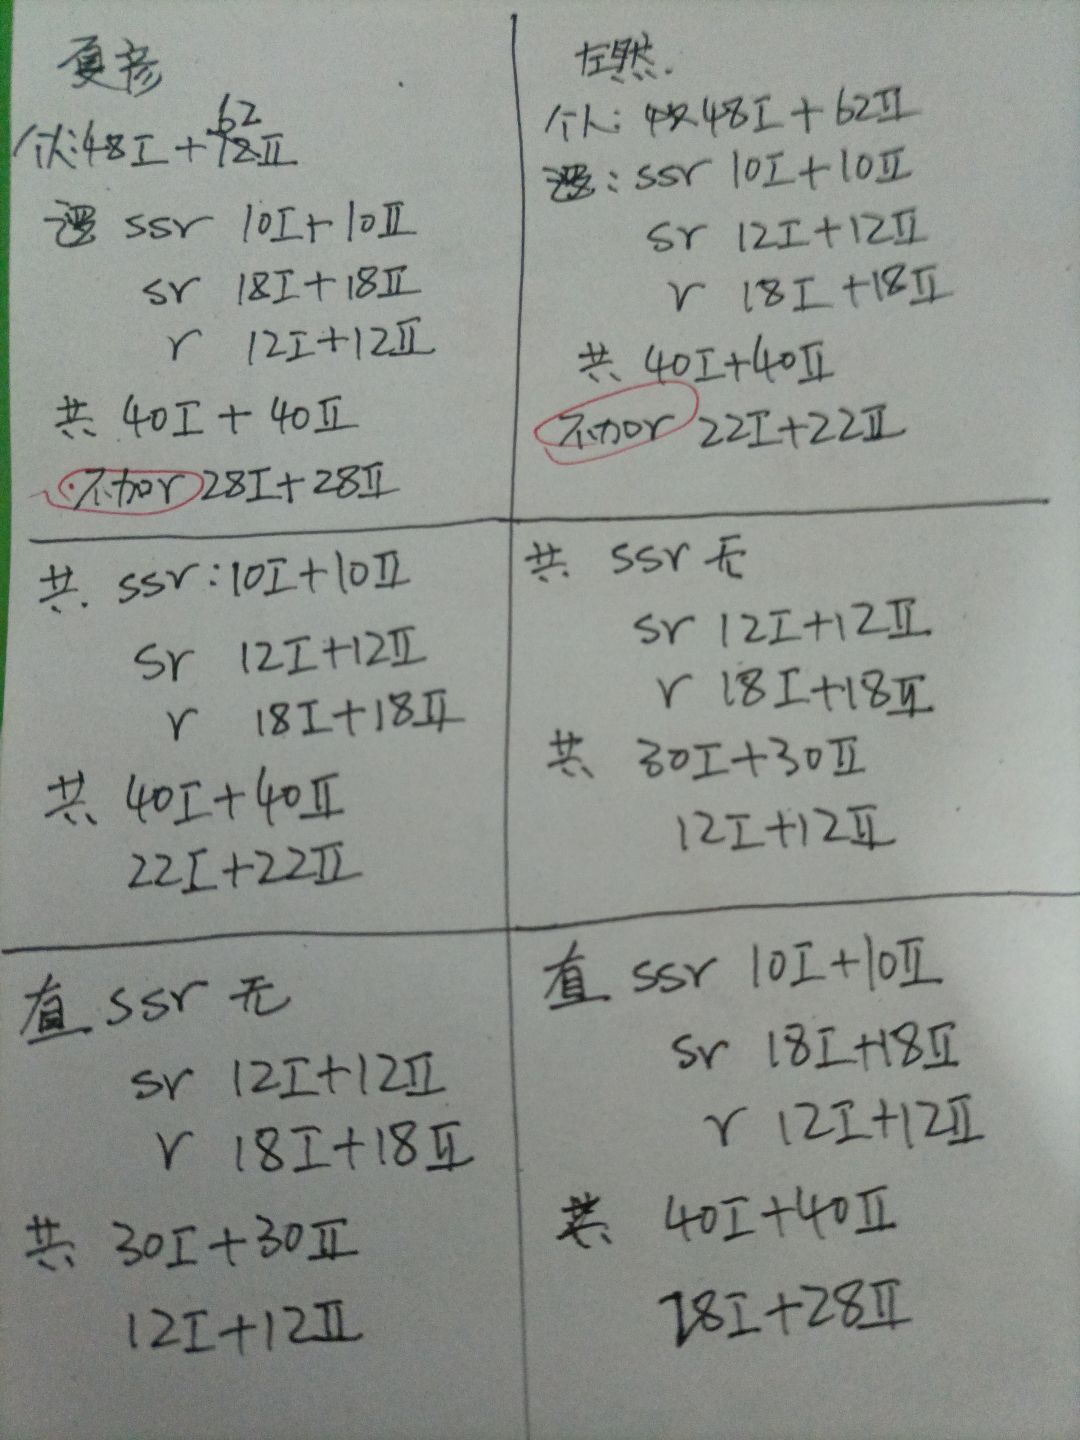 夏彦
个人:48I+62II
逻 ssr 10I+10II
sr 18I+18II
r 12I+12II
共 40I+40II
不加r 28I+28II
左然
个人: 48I+62II
逻: ssr 10I+10II
sr 12I+12II
r 18I+18II
共 40I+40II
不加r 22I+22II
共 ssr:10I+10II
sr 12I+12II
r 18I+18II
共 40I+40II
22I+22II
共 ssr 无
sr 12I+12II
r 18I+18II
共 30I+30II
12I+12II
直 ssr 无
sr 12I+12II
r 18I+18II
共 30I+30II
12I+12II
直 ssr 10I+10II
sr 18I+18II
r 12I+12II
共 40I+40II
28I+28II